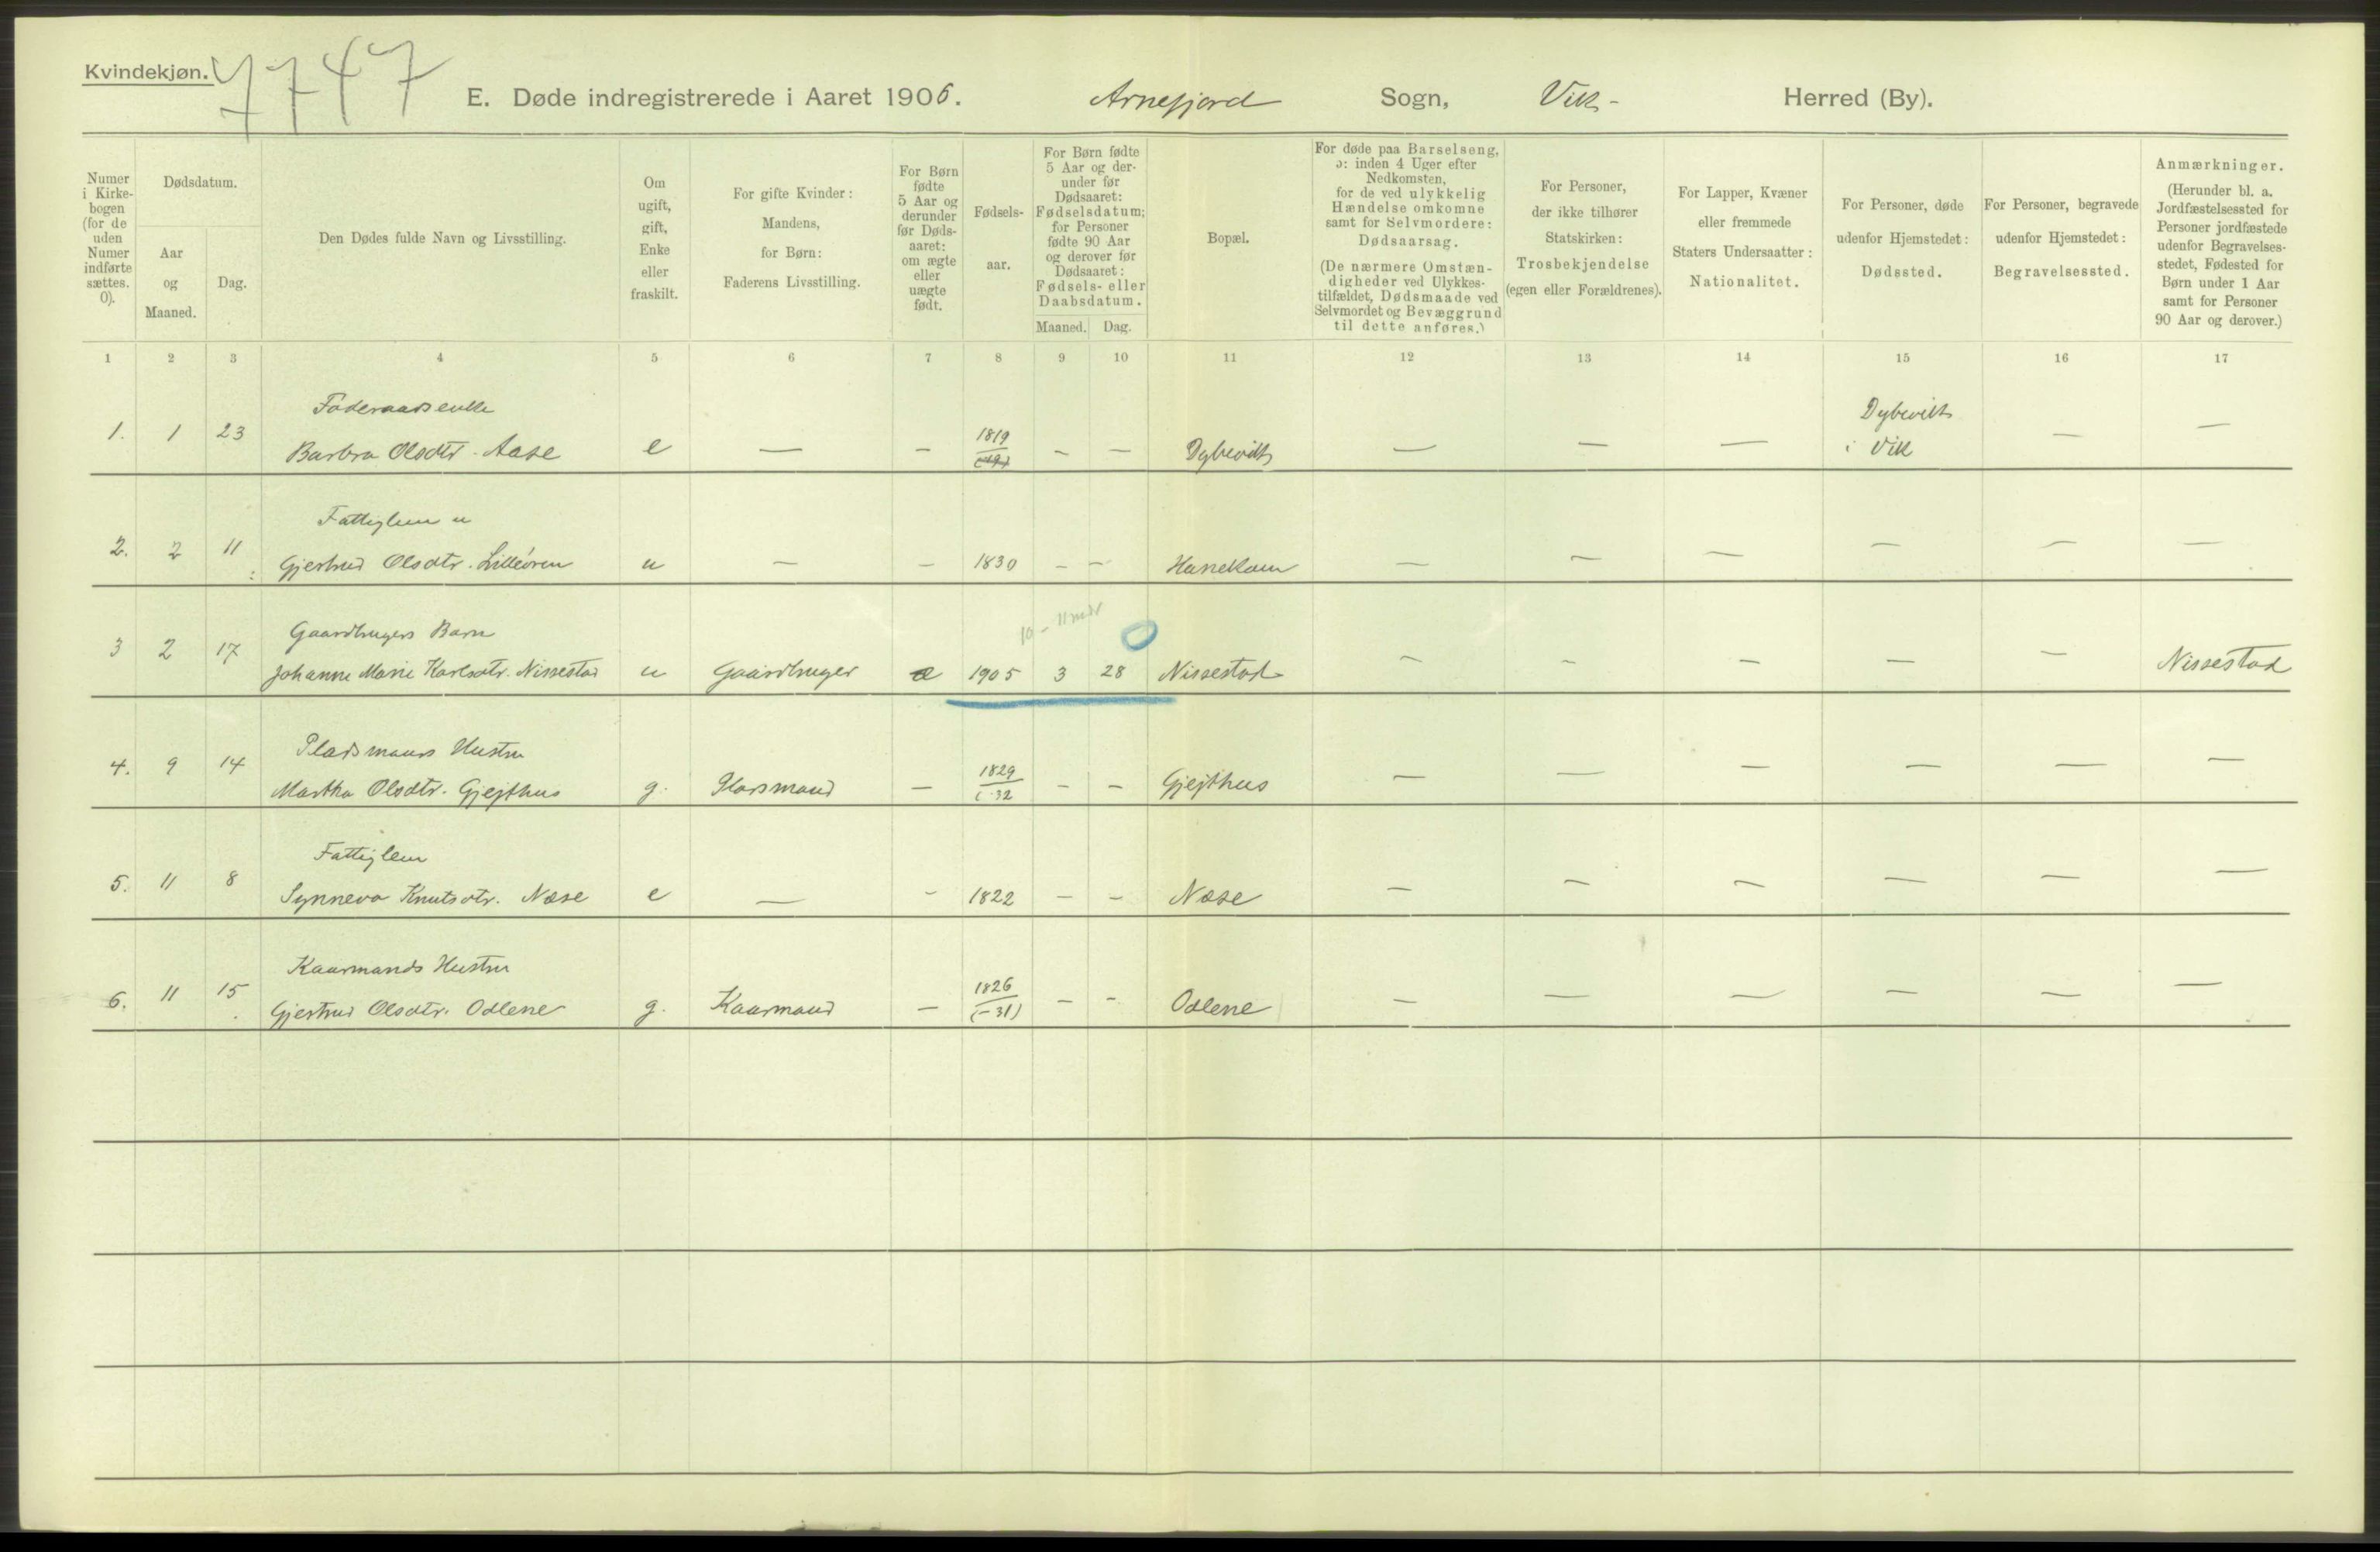 Kvindekjøn.
7747
E. Døde indregistrerede i Aaret 1906. Arnefjord Sogn, Vik - Herred (By).
Numer i Kirkebogen (for de uden Numer indførte sættes. 0).
Dødsdatum.
Aar og Maaned.
Dag.
Den Dødes fulde Navn og Livsstilling.
Om ugift, gift, Enke eller fraskilt.
For gifte Kvinder: Mandens, for Børn: Faderens Livsstilling.
For Børn fødte 5 Aar og derunder før Dødsaaret: om ægte eller uægte født.
Fødselsaar.
For Børn fødte 5 Aar og derunder før Dødsaaret: Fødselsdatum; for Personer fødte 90 Aar og derover før Dødsaaret: Fødsels- eller Daabsdatum.
Maaned. Dag.
Bopæl.
For døde paa Barselseng, ɔ: inden 4 Uger efter Nedkomsten, for de ved ulykkelig Hændelse omkomne samt for Selvmordere: Dødsaarsag.
(De nærmere Omstændigheder ved Ulykkestilfældet, Dødsmaade ved Selvmordet og Bevæggrund til dette anføres.)
For Personer, der ikke tilhører Statskirken: Trosbekjendelse (egen eller Forældrenes).
For Lapper, Kvæner eller fremmede Staters Undersaatter: Nationalitet.
For Personer, døde udenfor Hjemstedet: Dødssted.
For Personer, begravede udenfor Hjemstedet: Begravelsessted.
Anmærkninger.
(Herunder bl. a. Jordfæstelsessted for Personer jordfæstede udenfor Begravelsesstedet, Fødested for Børn under 1 Aar samt for Personer 90 Aar og derover.)
1 2 3 4 5 6 7 8 9 10 11 12 13 14 15 16 17
Føderaadsenke Dybevik
1. 1 23 Barbra Olsdtr. Aase e — — 1819 — — Dybevik — — — i Vik — —
Fattiglem u
2. 2 11 Gjertrud Olsdtr. Lilleøren u — — 1830 — — Hanekam — — — — — —
10-11 mdr 0
Gaardbrugers Barn
3 2 17 Johanne Marie Karlsdtr. Nissestad u Gaardbruger æ 1905 3 28 Nissestad — — — — — Nissestad
Pladsmands Hustru
4. 9 14 Martha Olsdtr. Gjejthus g. Plasmand — 1829 — — Gjejthus — — — — — —
(-32
Fattiglem
5. 11 8 Synneva Knutsdtr. Næse e — — 1822 — — Næse — — — — — —
Kaarmands Hustru
6. 11 15 Gjertrud Olsdtr. Odlene g. Kaarmand — 1826 — — Odlene — — — — — —
(-31)